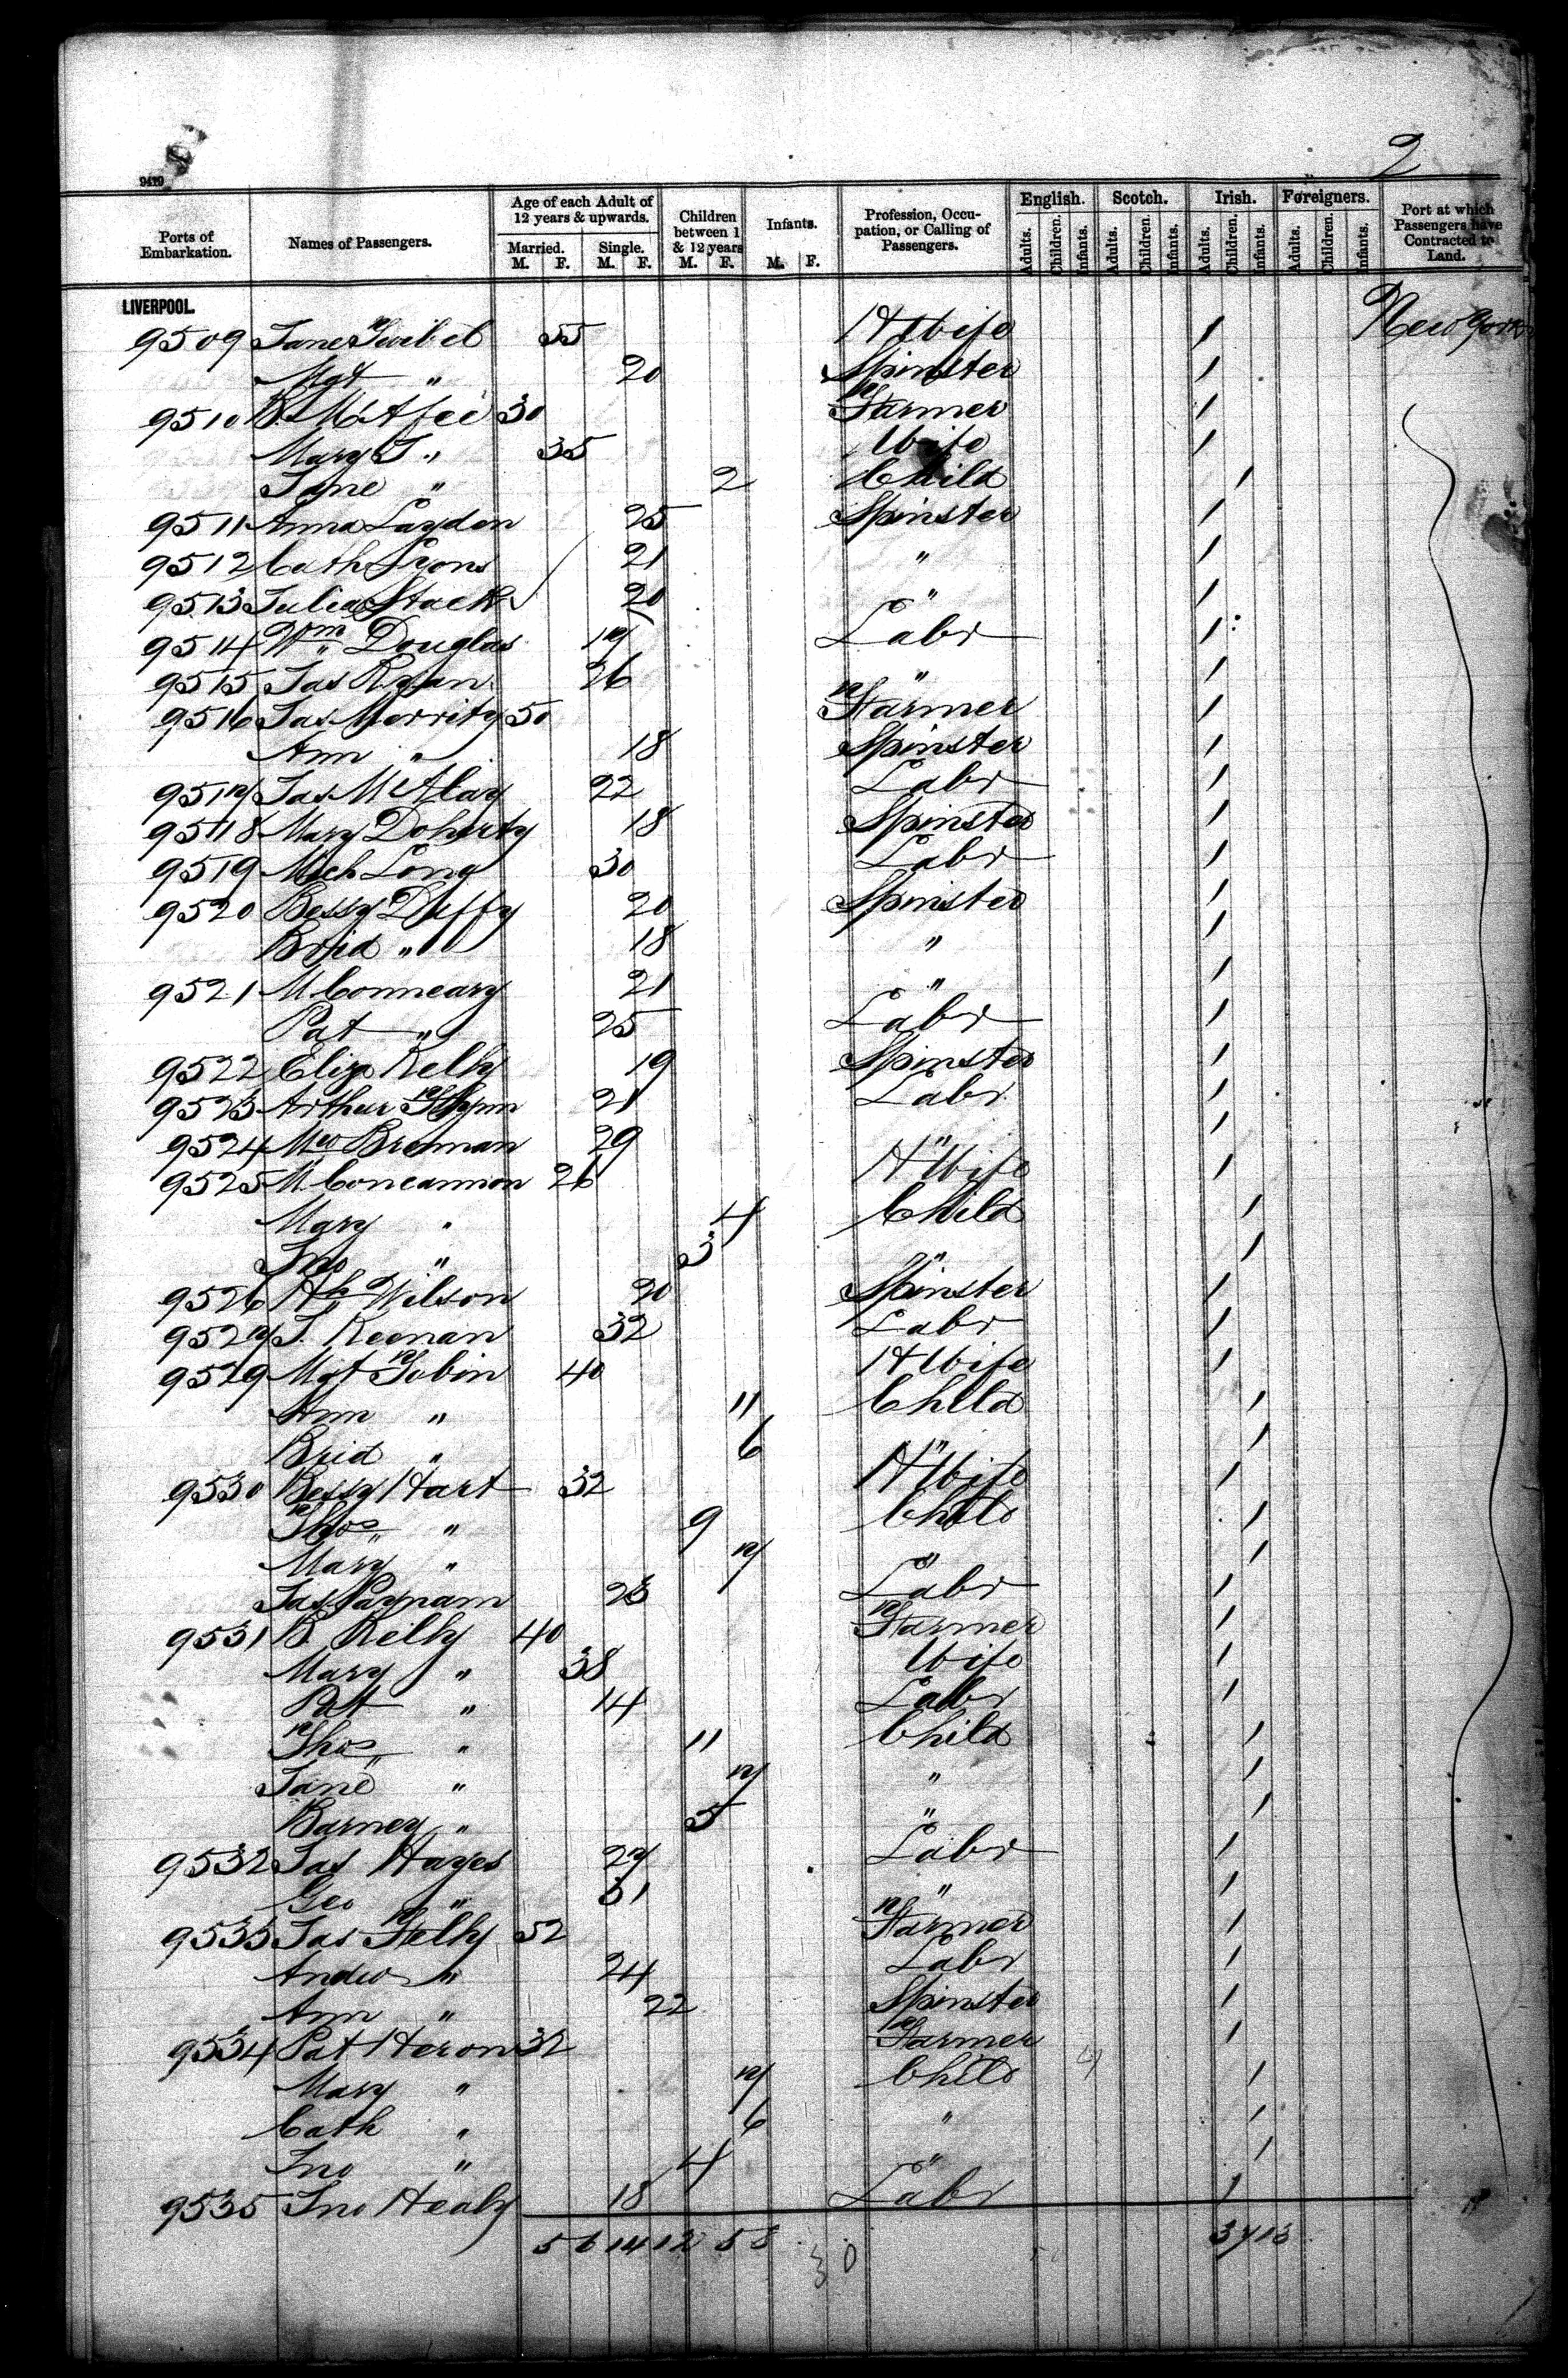 2
9479
Ports of Embarkation. Names of Passengers. Age of each Adult of 12 years & upwards. Married. M. F. Single. M. F. Children between 1 & 12 years M. F. Infants. M. F. Profession, Occupation, or Calling of Passengers. English. Adults. Children. Infants. Scotch. Adults. Children. Infants. Irish. Adults. Children. Infants. Foreigners. Adults. Children. Infants. Port at which Passengers have Contracted to Land.
LIVERPOOL.
9509 Jane 55 H Wife / New York
Mgt " 20 Spinster /
9510 B. McAfee 30 Farmer /
Mary J. " 35 Wife /
Jane " 2 Child /
9511 Anna Laydon 25 Spinster /
9512 Cath Lyons 21 " /
9513 Julia Stack 20 " /
9514 Wm Douglas 17 Labr /
9515 Jas Ryan 26 " /
9516 Jas Merrity 50 Farmer /
Ann " 18 Spinster /
9517 Jas McAlay 22 Labr /
9518 Mary Doherty 18 Spinster /
9519 Mich Long 30 Labr /
9520 Bessy Duffy 20 Spinster /
Brid " 18 " /
9521 M Conneary 21 " /
Pat " 25 Labr /
9522 Eliza Kelly 19 Spinster /
9523 Arthur Flynn 21 Labr /
9524 Brennan 29 " /
9525 M Concannon 26 H Wife /
Mary " 4 Child /
Jno " 3 " /
9526 Wilson 20 Spinster /
9527 J. Keenan 32 Labr /
9529 Mgt Tobin 40 H Wife /
Ann " 11 Child /
Brid " 6 " /
9530 Bessy Hart 32 H Wife /
Thos " 9 Child /
Mary " 7 " /
Jas 23 Labr /
9531 B. Reilly 40 Farmer /
Mary " 38 Wife /
Pat " 14 Labr /
Thos " 11 Child /
Jane " 7 " /
Barney " 5 " /
9532 Jas Hayes 27 Labr /
Geo " 31 " /
9533 Jas 52 Farmer /
Andw " 24 Labr /
Ann " 22 Spinster /
9534 Pat Heron 32 Farmer /
Mary " 7 Child /
Cath " 6 " /
Jno " 4 " /
9535 Jno Healy 18 Labr /
5 6 14 12 5 8 37 13
30